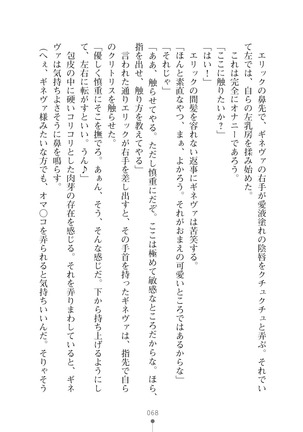 エリックの鼻先で、ギネヴァの右手が愛液濡れの陰唇をクチュクチュと弄ぶ。それでい
て左では、自らの左乳房を揉み始めた。
これは完全にオナニーであろう。
「ここに触りたいか？」
「はい！」
エリックの間髪を容れない返事にギネヴァは苦笑する。
「ほんと素直なやつ。まぁ、よかろう。それがおまえの可愛いところではあるからな」
「それじゃ」
「ああ、触らせてやる。ただし慎重にだぞ。ここは極めて敏感なところだから。ほら、
指を出せ、触り方を教えてやる」
言われた通りエリックが右手を差し出すと、その手首を持ったギネヴァは、指先で自ら
のクリトリスを触らせた。
「優しく慎重にそこを撫でろ。ああん、そう、そんな感じだ。下から持ち上げるようにし
て、左右に転がすといい。うん♪」
包皮の中に硬いコリコリとした肉芽の存在を感じる。それを弄りまわしていると、ギネ
ヴァは気持ちよさそうに鼻を鳴らす。
（へぇ、ギネヴァ様みたいな方でも、オマ〇コを弄られると気持ちいいんだ。そりゃそう
068